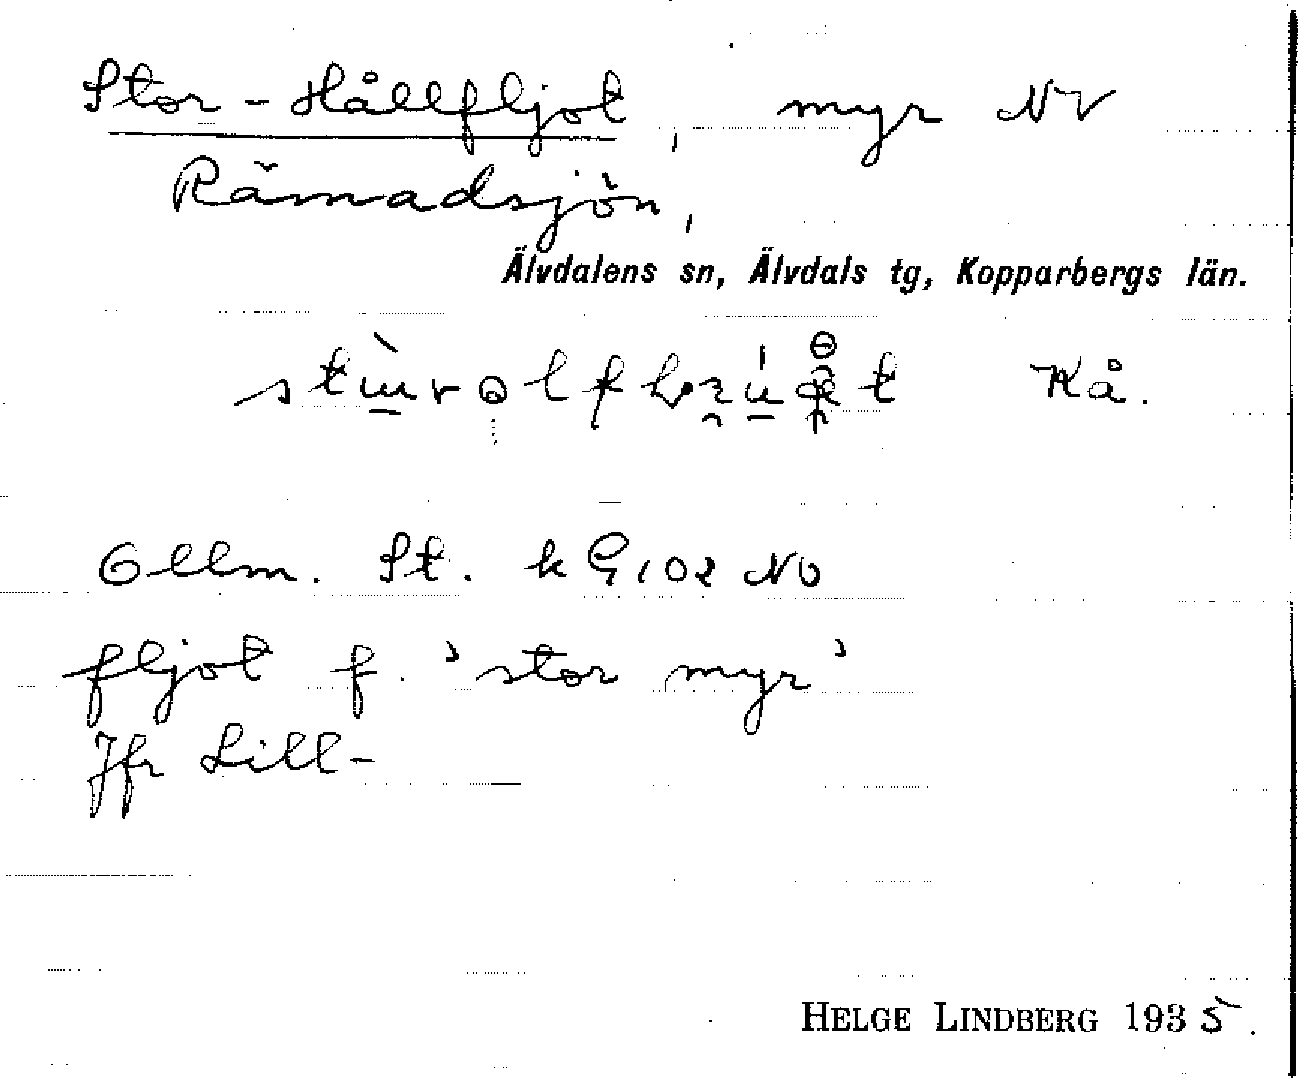 Stor-Hållfljot, myr NV
Råmadsjön,
Älvdalens sn, Älvdals tg, Kopparbergs län.
Kå.
Ollm. St. k G 102 No
fljot f. 'stor myr'
Jfr Lill-
HELGE LINDBERG 1935.